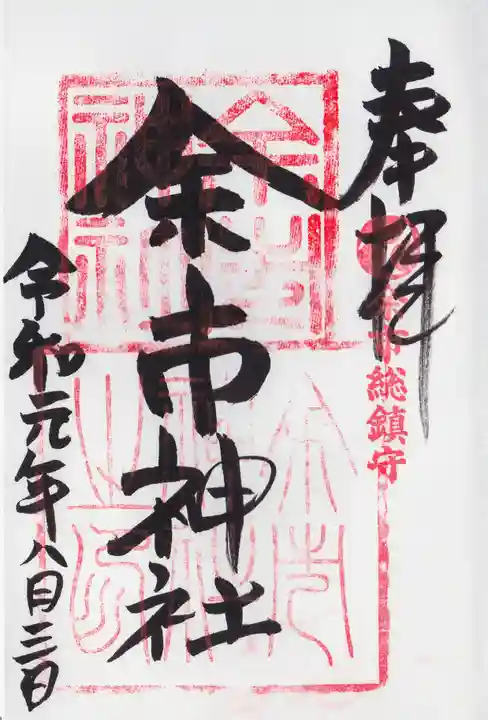 奉拝
余市総鎮守
余市神社
令和元年八月三日